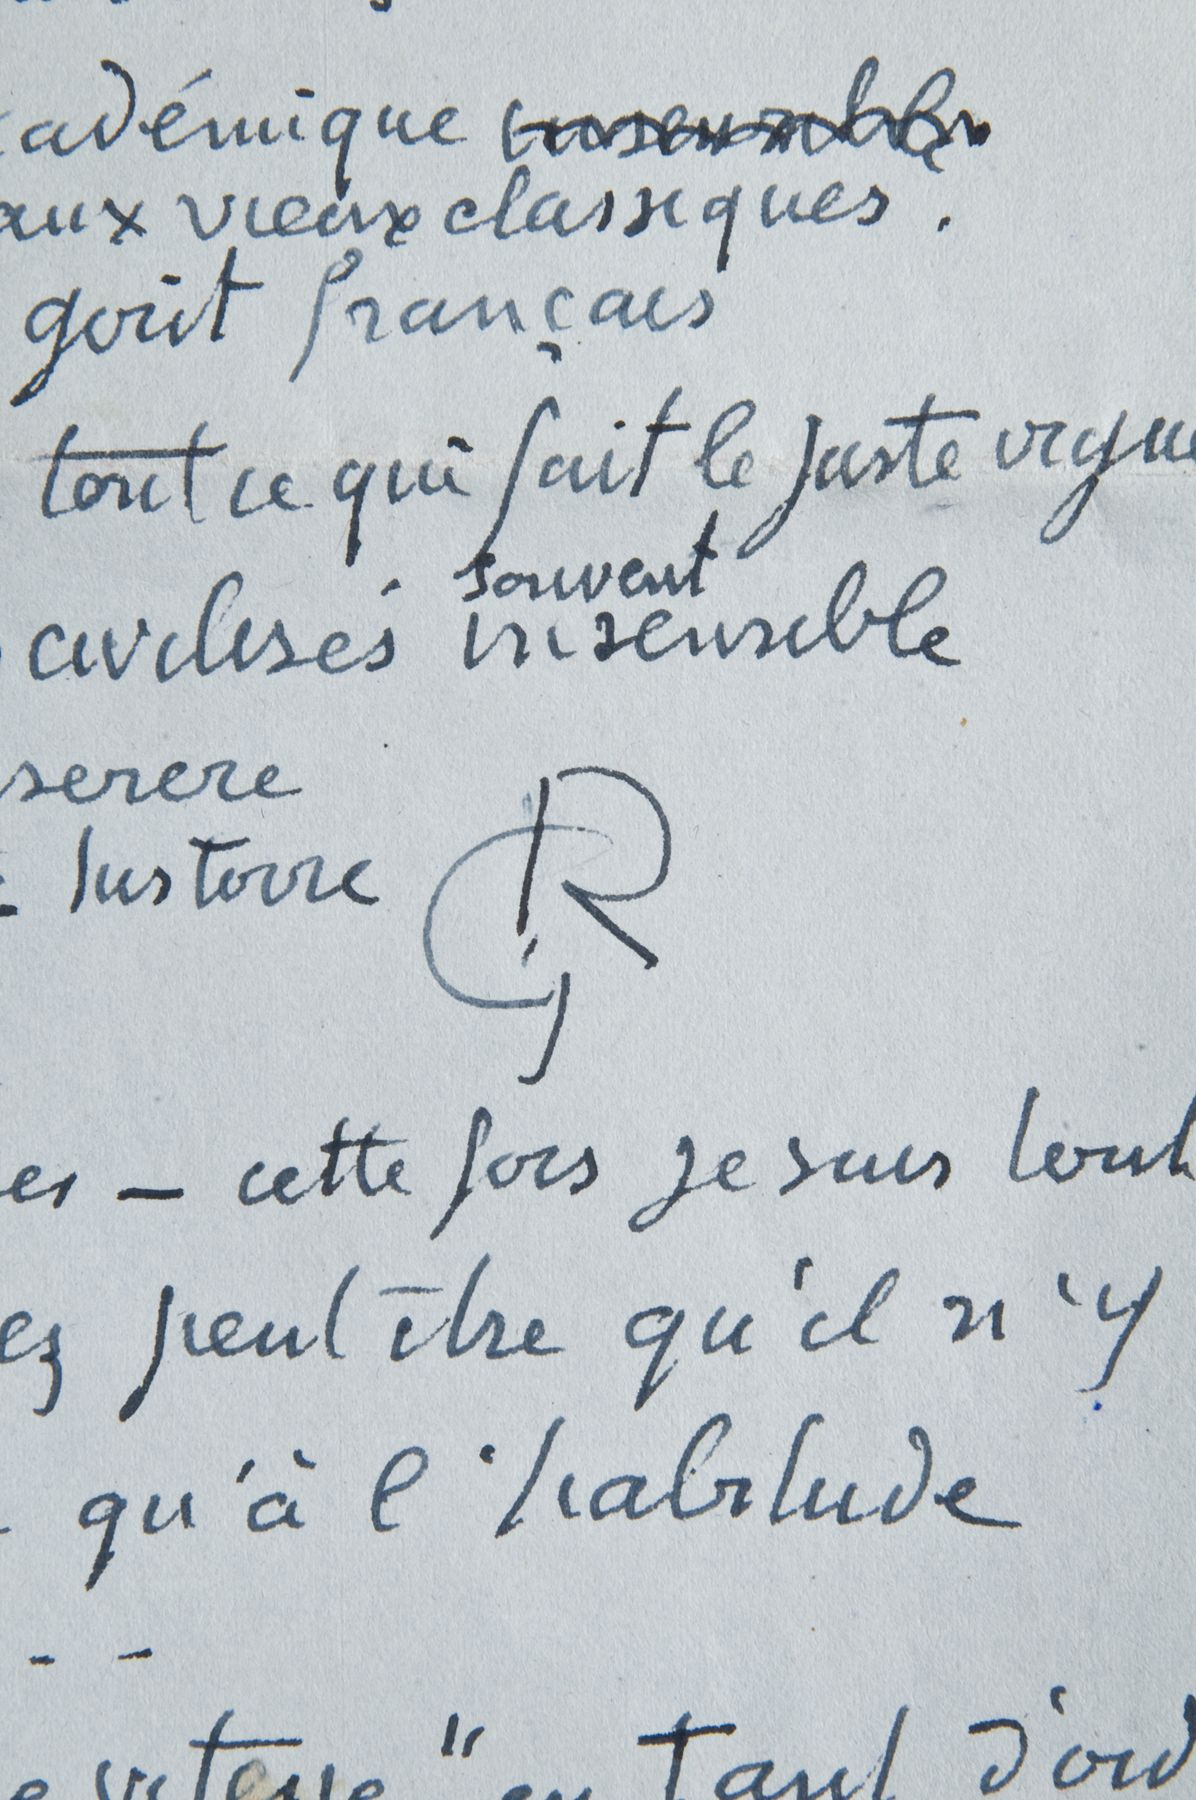 académique ~~insensible~~
aux vieux classiques.
goût français
tout ce qui fait le juste
souvent
civilisés insensible
histoire
R
– cette fois je suis tout
peut être qu'il n'y
qu'à l'habitude
- -
vitesse" en tant d'